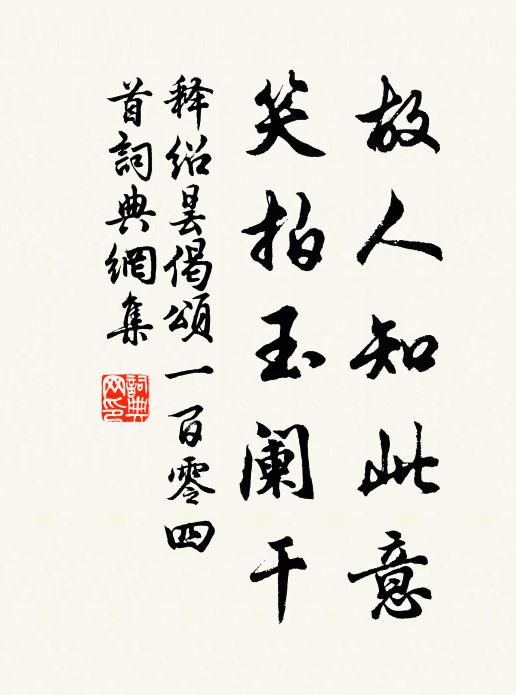 故人知此意
笑拍玉阑干
释绍昙偈颂一百零四
首詞典網集
詞典网印